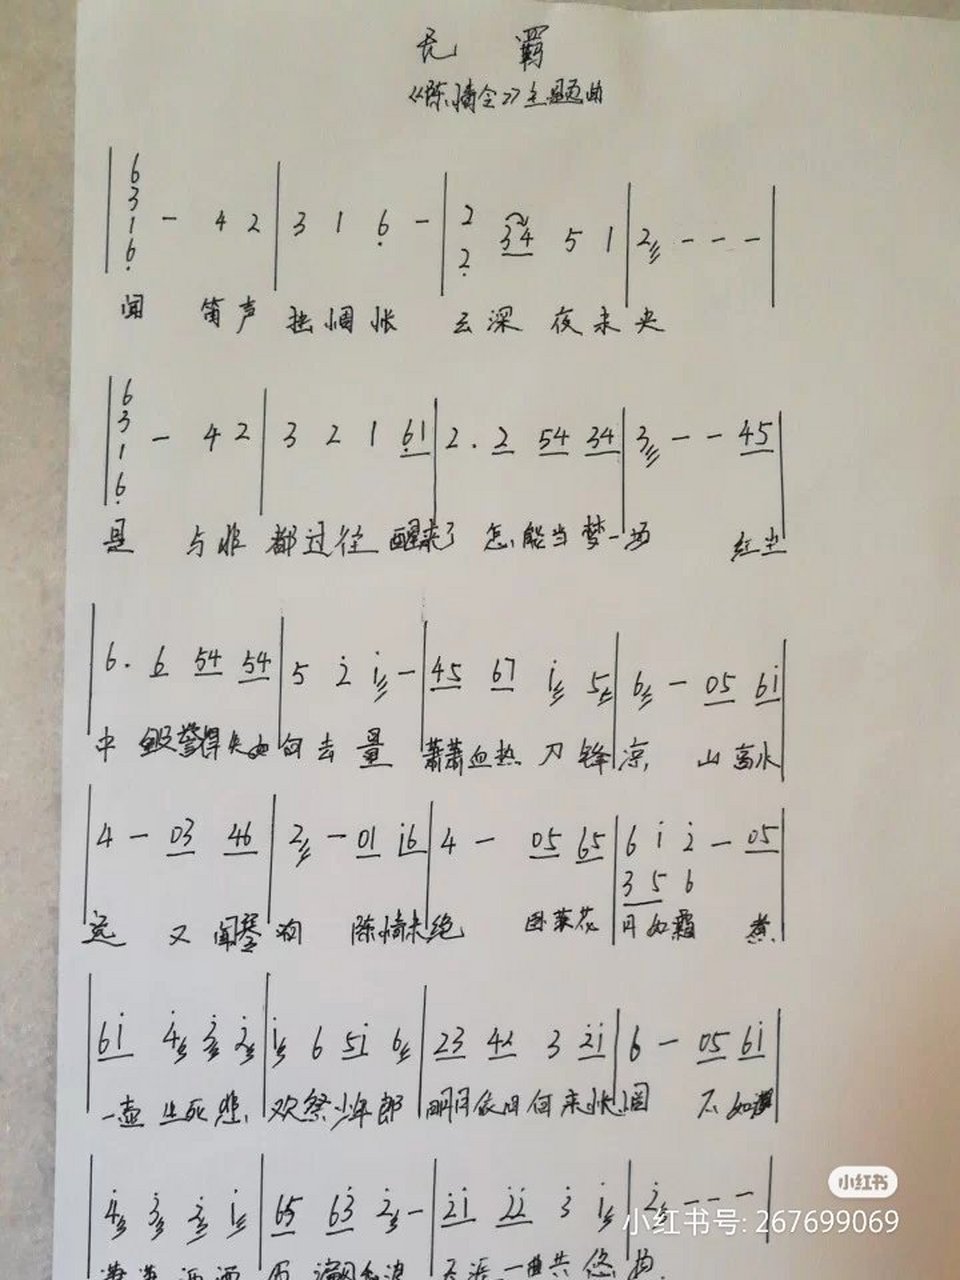 无 羁
《陈情令》主题曲
6 3 1 6̣ - 4 2 | 3 1 6̣ - | 2 2̣ 34 5 1 | 2 - - - |
闻 笛声 独惆怅 云深 夜未央
6 3 1 6̣ - 4 2 | 3 2 1 6̣1 | 2. 2 54 34 | 3 - - 45 |
是 与非 都过往 醒来了 怎能当梦一场 红尘
6. 6 54 54 | 5 2̇ 1̇ - | 45 67 1̇ 5 | 6 - 05 61̇ |
中 毁誉得失如何去量 萧萧血热 刀锋凉 山高水
4 - 03 46 | 2 - 01 1̇6 | 4 - 05 65 | 6 1̇ 2̇ - 05 |
3 5 6
远 又闻琴响 陈情未绝 卧荻花 月如霜 煮
61̇ 4̇ 3̇ 2̇ | 1̇ 6 51̇ 6 | 23 42 3 2̇1̇ | 6 - 05 61̇ |
一壶生死悲 欢祭少年郎 明月依旧何来怅惘 不如潇
4̇ 3̇ 2̇ 1̇ | 65 63̇ 2̇ - | 2̇1̇ 2̇2̇ 3̇ 1̇ | 2̇ - - - |
天涯一曲共悠扬
小红书
小红书号: 267699069